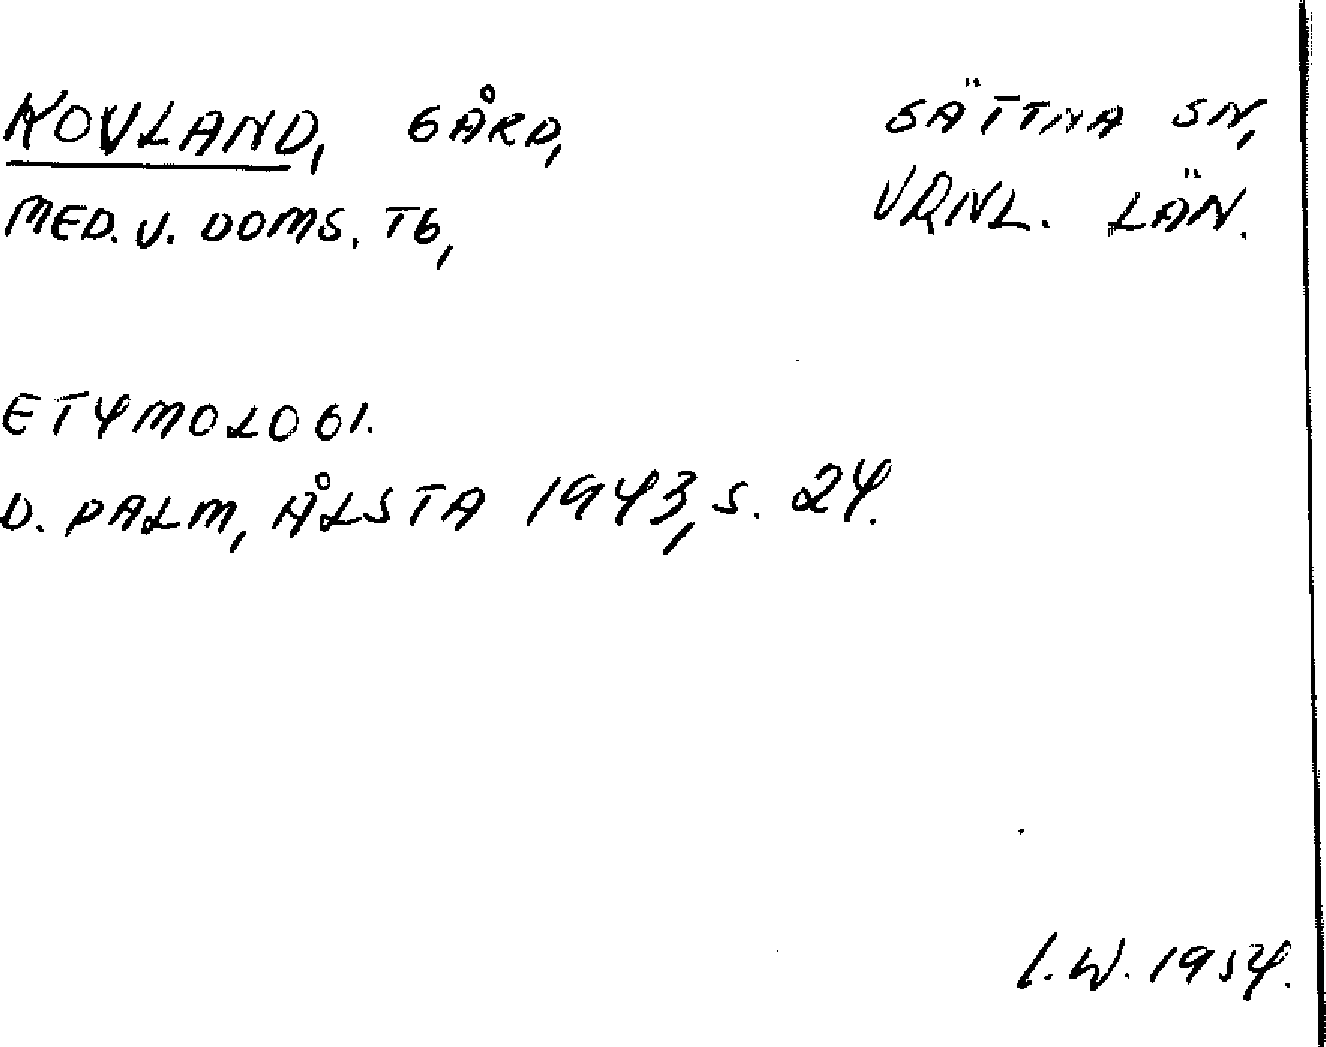 KOVLAND, GÅRD, SÄTTNA SN,
MED. V. DOMS. TG, VRNL. LÄN.
ETYMOLOGI.
D. PALM, ÅLSTA 1943, S. 24.
I. W. 1954.